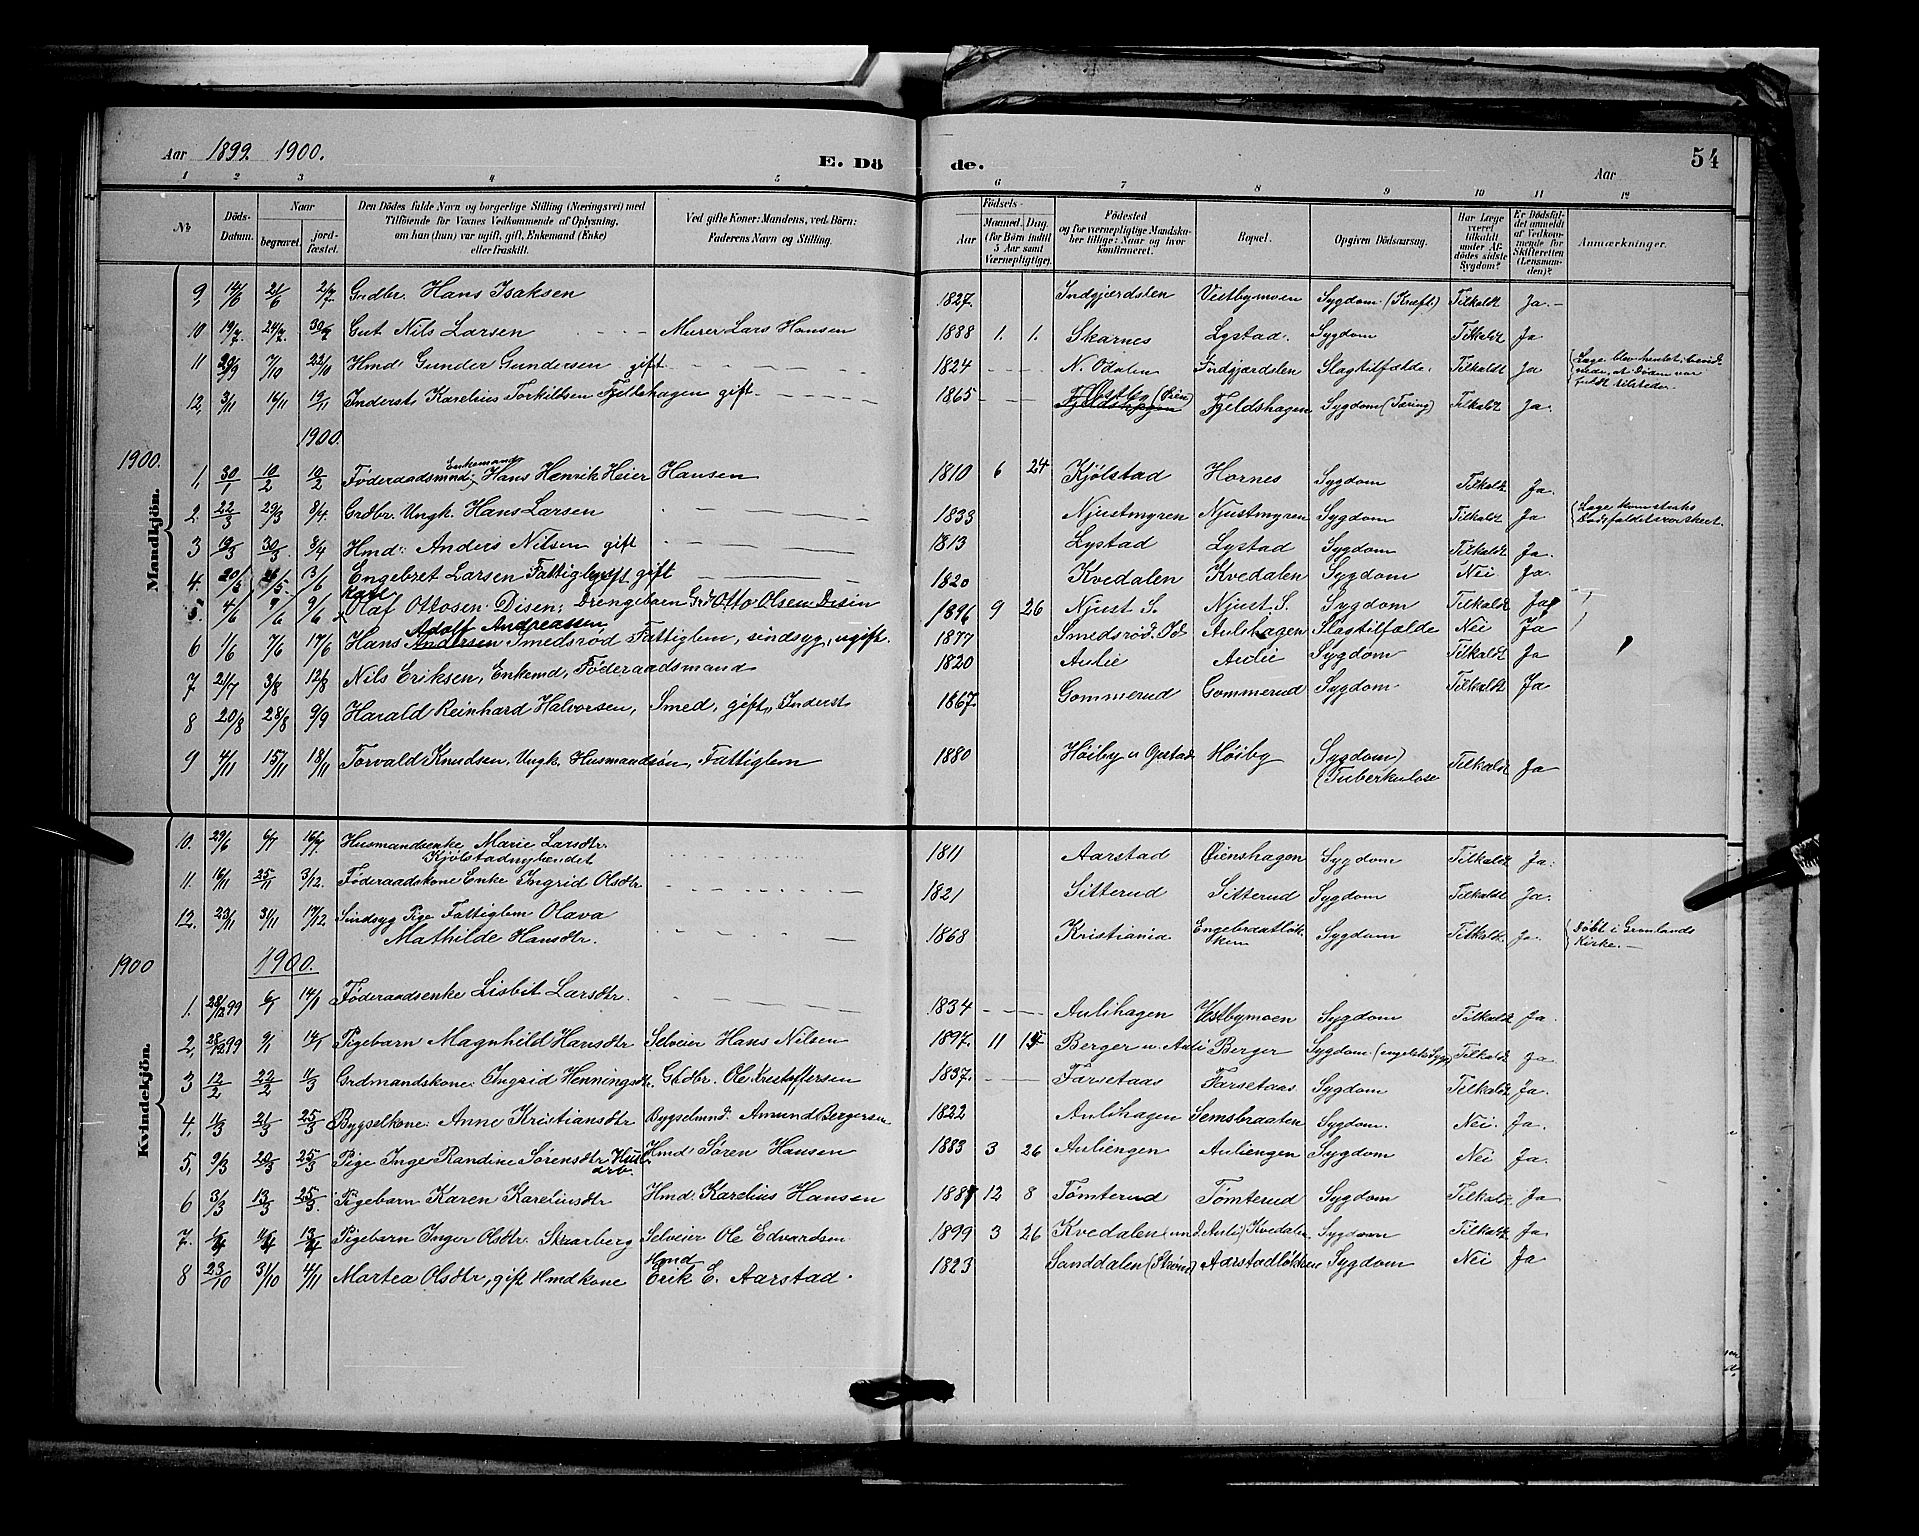 Aar 1899. 1900. E. Dö de. Aar 54
1 2 3 4 5 6 7 8 9 10 11 12
No Döds-Datum. Naar begravet. jord-fæstet. Den Dödes fulde Navn og borgerlige Stilling (Næringsvei) med Tilföiende for Voxnes Vedkommende af Oplysning, om han (hun) var ugift, gift, Enkemand (Enke) eller fraskilt. Ved gifte Koner: Mandens, ved Börn: Faderens Navn og Stilling. Födsels- Aar Maaned. Dag. (for Börn indtil 5 Aar samt Værnepligtige). Födested og for værnepligtige Mandska-ber tillige: Naar og hvor konfirmeret. Bopæl. Opgiven Dödsaarsag. Har Læge været tilkaldt under Af-dödes sidste Sygdom? Er Dödsfal-det anmeldt af Vedkom-mende for Skifteretten (Lensman-den)? Anmærkninger.
Mandkjön.
9, 14/6 21/6 2/7 Grdbr. Hans Isaksen 1827. Indgjærdslen Vestbymoen Sygdom (Kræft) Tilkaldt Ja.
10 19/7. 24/7. 30/7 Gut Nils Larsen Murer Lars Hansen 1888 1. 1. Skarnes Lystad. Sygdom Tilkaldt Ja
11 29/9 7/10 22/10 Hmd: Gunder Gundersen gift 1824 N. Odalen Indgjærdslen Slagtilfælde. Tilkaldt Ja
12, 3/11 16/11 19/11 Inderst Karelius Torkildsen Fjeldshagen gift. 1865 Fjeldshagen Sygdom (Tæring) Tilkaldt Ja.
1900.
1900.
1, 30/1 10/2 10/2 Föderaadsmand, Enkemand Hans Henrik Heier Hansen 1810 6 24 Kjölstad Hornes Sygdom Tilkaldt Ja.
2. 22/3 29/3 8/4. Grdbr. Ungk. Hans Larsen 1833 Njustmyren Njustmyren Sygdom Tilkaldt Ja
3 19/3 30/3 8/4 Hmd: Anders Nilsen gift 1813 Lystad Lystad Sygdom Tilkaldt Ja.
4. Engebret Larsen Fattiglem gift 1820 Kvedalen Kvedalen Sygdom Nei Ja.
5. 4/6 9/6 9/6 Olaf Ottosen Disen; Drengebarn Grd. Otto Olsen Disin 1896 9 26 Njust S. Njust S. Sygdom Tilkaldt Ja
6 1/6 7/6 17/6 Hans Adolf Andreassen Andersen Smedsröd Fattiglem, sindsyg, ugift. 1877 Smedsröd. Od Aulihagen Slagtilfælde Nei Ja
7 21/7 3/8 12/8 Nils Eriksen, Enkemd, Föderaadsmand 1820 Aulie Aulie Sygdom Tilkaldt Ja
8 20/8 28/8 9/9 Harald Reinhard Halvorsen, Smed, gift, Inderst 1867. Gommerud Gommerud Sygdom Tilkaldt Ja
9 4/11 15/11 18/11 Torvald Knudsen, Ungk. Husmandsön, Fattiglem 1880 Höiby u Opstad Höiby Sygdom (Tuberkulose Tilkaldt Ja
Kvindekjön.
10. 29/6 6/7 16/7. Husmandsenke Marie Larsdtr. Kjölstadnybendet 1811 Aarstad Öienshagen Sygdom Tilkaldt Ja.
11. 16/11 25/11 3/12. Föderaadskone Enke Ingrid Olsdtr. 1821 Sitterud Sitterud Sygdom Tilkaldt Ja.
12. 23/11 31/11 17/12 Sindsyg Pige Fattiglem Olava Mathilde Hansdtr. 1868 Kristiania Sygdom Tilkaldt Ja. Döbt i Grønlands Kirke.
1900
1900.
1. 28/12 99 Föderaadsenke Lisbit Larsdtr. 1834 Aulihagen Vestbymoen Sygdom Tilkaldt Ja.
2, 28/12 99 9/1 14/1 Pigebarn Magnhild Hansdtr Selveier Hans Nilsen 1897. 11 Berger u. Auli Berger Sygdom (engelsk Syge) Tilkaldt Ja.
3 12/2 22/2 11/3 Grdmandskone. Ingrid Henningsdtr. Grdbr. Ole Kristoffersen 1837. Farsetaas Farsetaas Sygdom Tilkaldt Ja.
4, 11/3 21/3 25/3 Bygselkone: Anne Kristiansdtr Bygselmd. Amund Bergersen 1822 Aulihagen Semsbraaten Sygdom. Nei. Ja.
5, 9/3 20/3 25/3 Pige Inge Randine Sörensdtr. Hmd: Sören Hansen 1883 3 26 Auliengen Auliengen Sygdom Nei Ja.
6 3/3 13/3 25/3. Pigebarn Karen Kareliusdtr Hmd. Karelius Hansen 12 8 Tömterud Tömterud Sygdom Tilkaldt Ja
7. Pigebarn Inger Olsdtr. Skarberg Selveier Ole Edvardsen 1899 3 26 Kvedalen Kvedalen Sygdom Tilkaldt Ja.
8 23/10 31/10 4/11 Martea Olsdtr, gift Hmdkone Hmd Erik E. Aarstad. 1823 Sanddalen (Ström) Aarstadlökken Sygdom Nei Ja